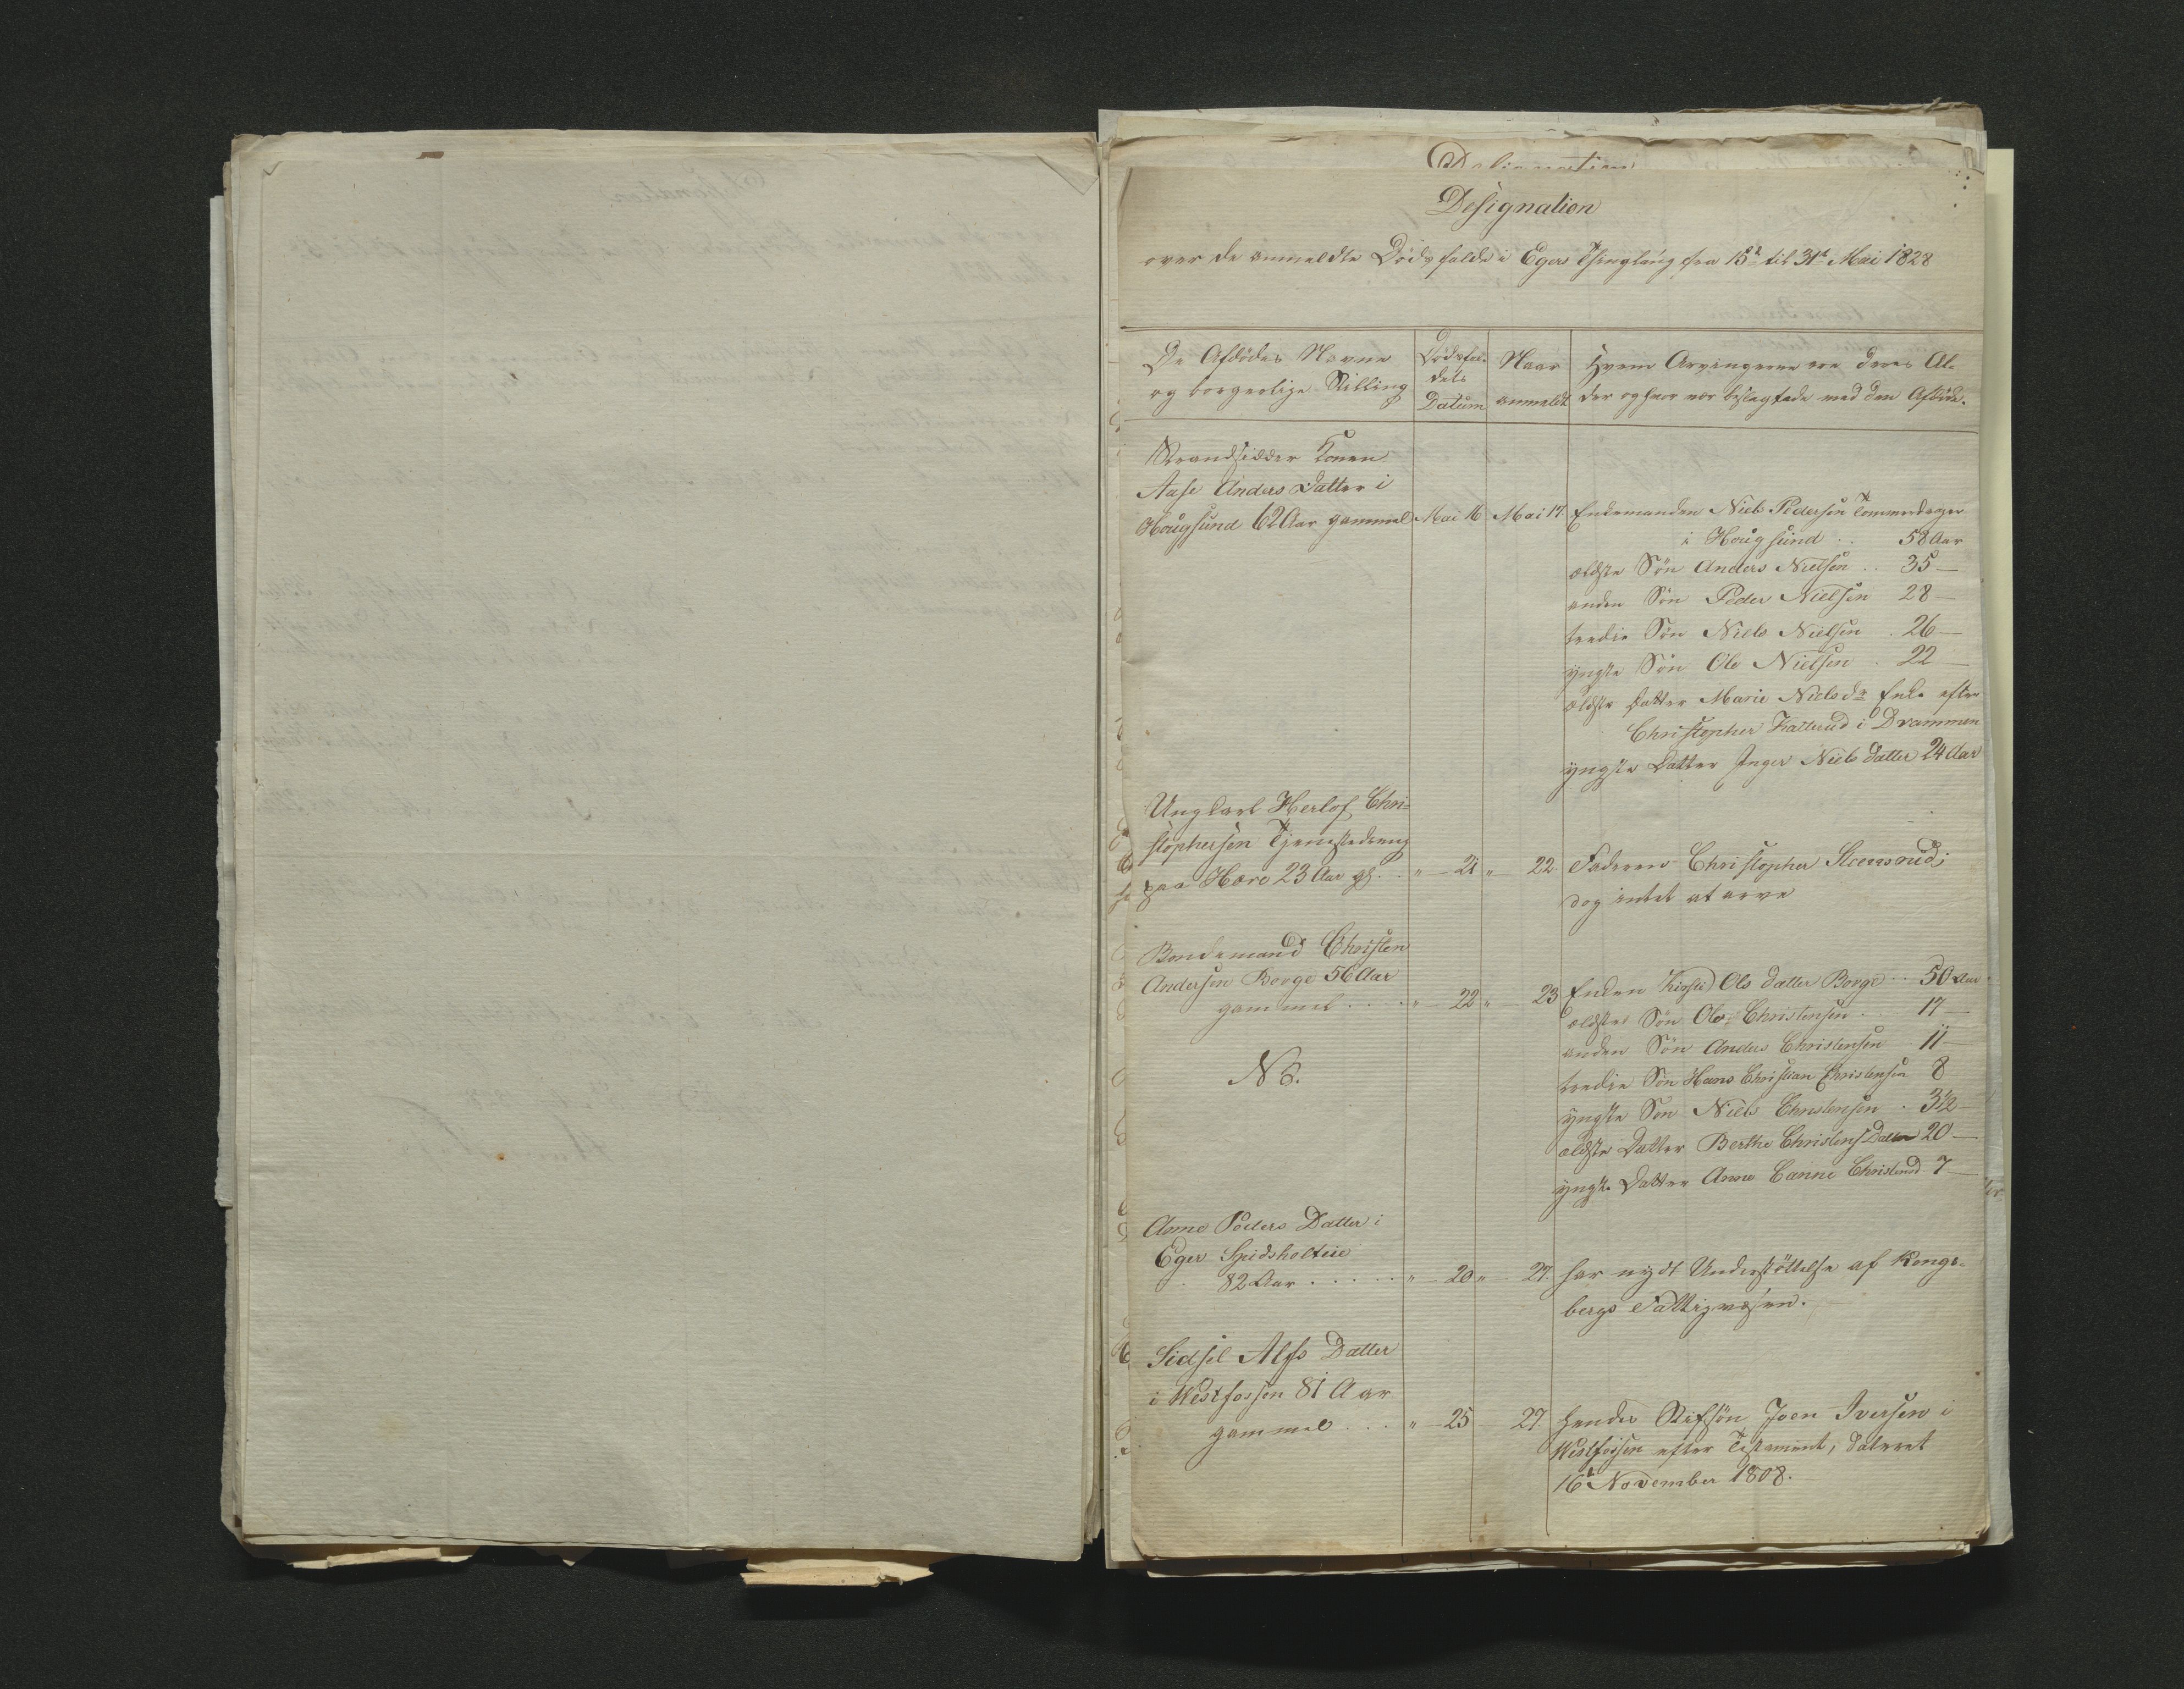 Designation
over de anmeldte Dødsfald i Egers Thinglaug fra 15d til 31t Mai 1828
De Afdødes Navne
og borgerlige Stilling
Dødsfal-
dets
Datum
Naar
anmeldt
Hvem Arvingerne ere deres Al-
der og hvor nær beslægtede med den Afdøde.
Strandsidder Konen
Aase Anders Datter i
Hougsund 62 Aar gammel Mai 16 Mai 17 Enkemanden Niels Pedersen Tømmerdreger
i Hougsund .. 58 Aar
ældste Søn Anders Nielsen .. 35 —
anden Søn Peder Nielsen 28 —
tredie Søn Niels Nielsen . 26 —
yngste Søn Ole Nielsen . 22 —
ældste Datter Marie Nielsdr Enke efter
Christopher in Drammen
yngste Datter Inger Niels datter 24 Aar
Ungkarl Herlof Chri-
stophersen Tjenestedreng
paa Hære 23 Aar gl. . " — 21 " — 22. Faderen Christopher
dog intet at arve
Bondemand Christen
Andersen Borge 56 Aar
gammel .... " — 22 " — 23 Enken Kirsti Ols datter Borge .. 50 Aar
ældste Søn Ole Christensen .. 17 —
anden Søn Anders Christensen . 11 —
tredie Søn Hans Christian Christensen 8
yngste Søn Niels Christensen . 3½ —
ældste Datter Berthe Christens Datter 20 —
yngste Datter Anne Canne Christensd 7 —
NB.
Anne Peders Datter i
Eger Spidsholteie
82 Aar ..... " — 20 " — 27. har nydt Understöttelse af Kongs-
bergs Fattigvæsen.
Sidsel Alfs Datter
i Westfossen 81 Aar
gammel ... " — 25 — 27. hendes Stifsøn Joen Iversen i
Westfossen efter Testament, dateret
16d November 1808.